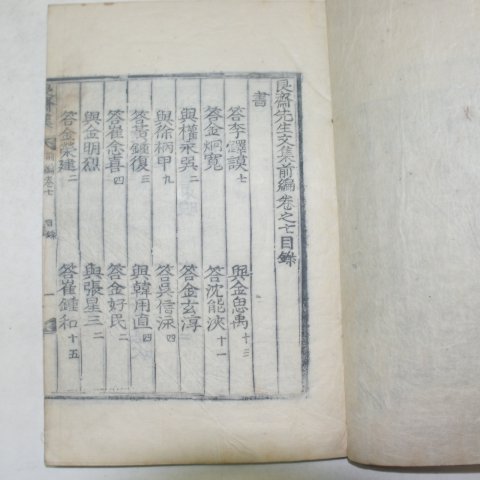 艮齋先生文集前編卷之七目錄
書
答李鐸謨七 與金思禹十三
答金炯寬 答沈能浹十一
與權永吳二 答金玄淳
與徐柄甲九 答吳信泳四
答黃鍾復三 與韓用直四
答崔余喜四 答金好民二
與金明烈 與張星三二
答金永建二 答崔鍾和十五
前編卷七 目錄 一